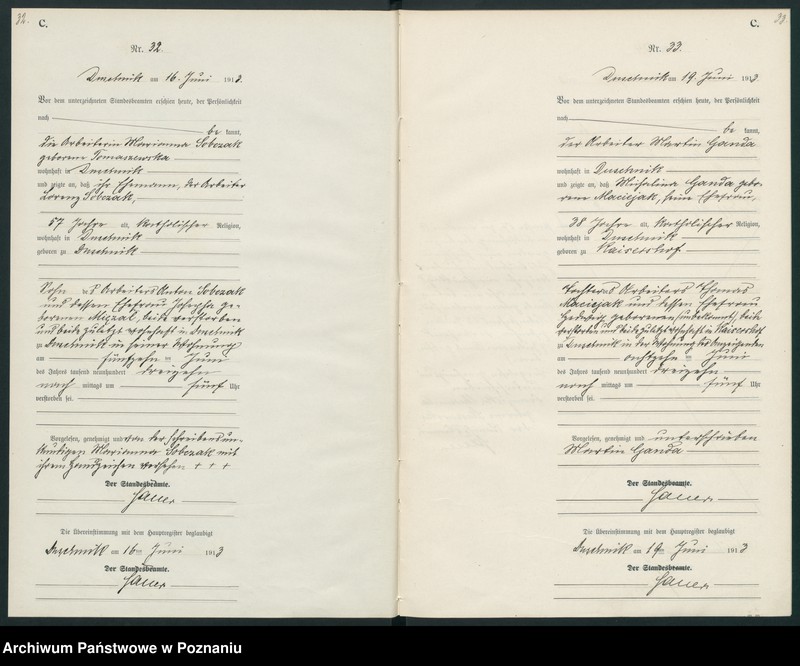 32.
C.
Nr. 32.
Duschnik am 16. Juni 1913.
Vor dem unterzeichneten Standesbeamten erschien heute, der Persönlichkeit
nach
be kannt,
die Arbeiterin Marianna Sobczak
geborene Tomaszewska
wohnhaft in Duschnik
und zeigte an, daß ihr Ehemann, der Arbeiter
Lorenz Sobczak,
57 Jahre alt, katholischer Religion,
wohnhaft in Duschnik
geboren zu Duschnik
Sohn des Arbeiters Anton Sobczak
und dessen Ehefrau Josepha ge-
borenen beide verstorben
und beide zuletzt wohnhaft in Duschnik
zu Duschnik in seiner Wohnung
am fünfzehn ten Juni
des Jahres tausend neunhundert dreizehn
nach mittags um fünf Uhr
verstorben sei.
Vorgelesen, genehmigt und von der schreibensun-
kundigen Marianna Sobczak mit
ihrem Handzeichen versehen + + +
Der Standesbeamte.
Die Übereinstimmung mit dem Hauptregister beglaubigt
Duschnik am 16ten Juni 1913
Der Standesbeamte.
33.
C.
Nr. 33.
Duschnik am 19. Juni 1913.
Vor dem unterzeichneten Standesbeamten erschien heute, der Persönlichkeit
nach
be kannt,
der Arbeiter Martin Ganda
wohnhaft in Duschnik
und zeigte an, daß Michalina Ganda gebo-
rene Maciejak, seine Ehefrau,
38 Jahre alt, katholischer Religion,
wohnhaft in Duschnik
geboren zu Kaisershof
Tochter des Arbeiters Thomas
Maciejak und dessen Ehefrau
Hedwig geborenen (unbekannt), beide
verstorben und beide zuletzt wohnhaft in Kaisershof
zu Duschnik in der Wohnung des Anzeigenden
am achtzehn ten Juni
des Jahres tausend neunhundert dreizehn
nach mittags um fünf Uhr
verstorben sei.
Vorgelesen, genehmigt und unterschrieben
Martin Ganda
Der Standesbeamte.
Die Übereinstimmung mit dem Hauptregister beglaubigt
Duschnik am 19ten Juni 1913
Der Standesbeamte.
Archiwum Państwowe w Poznaniu